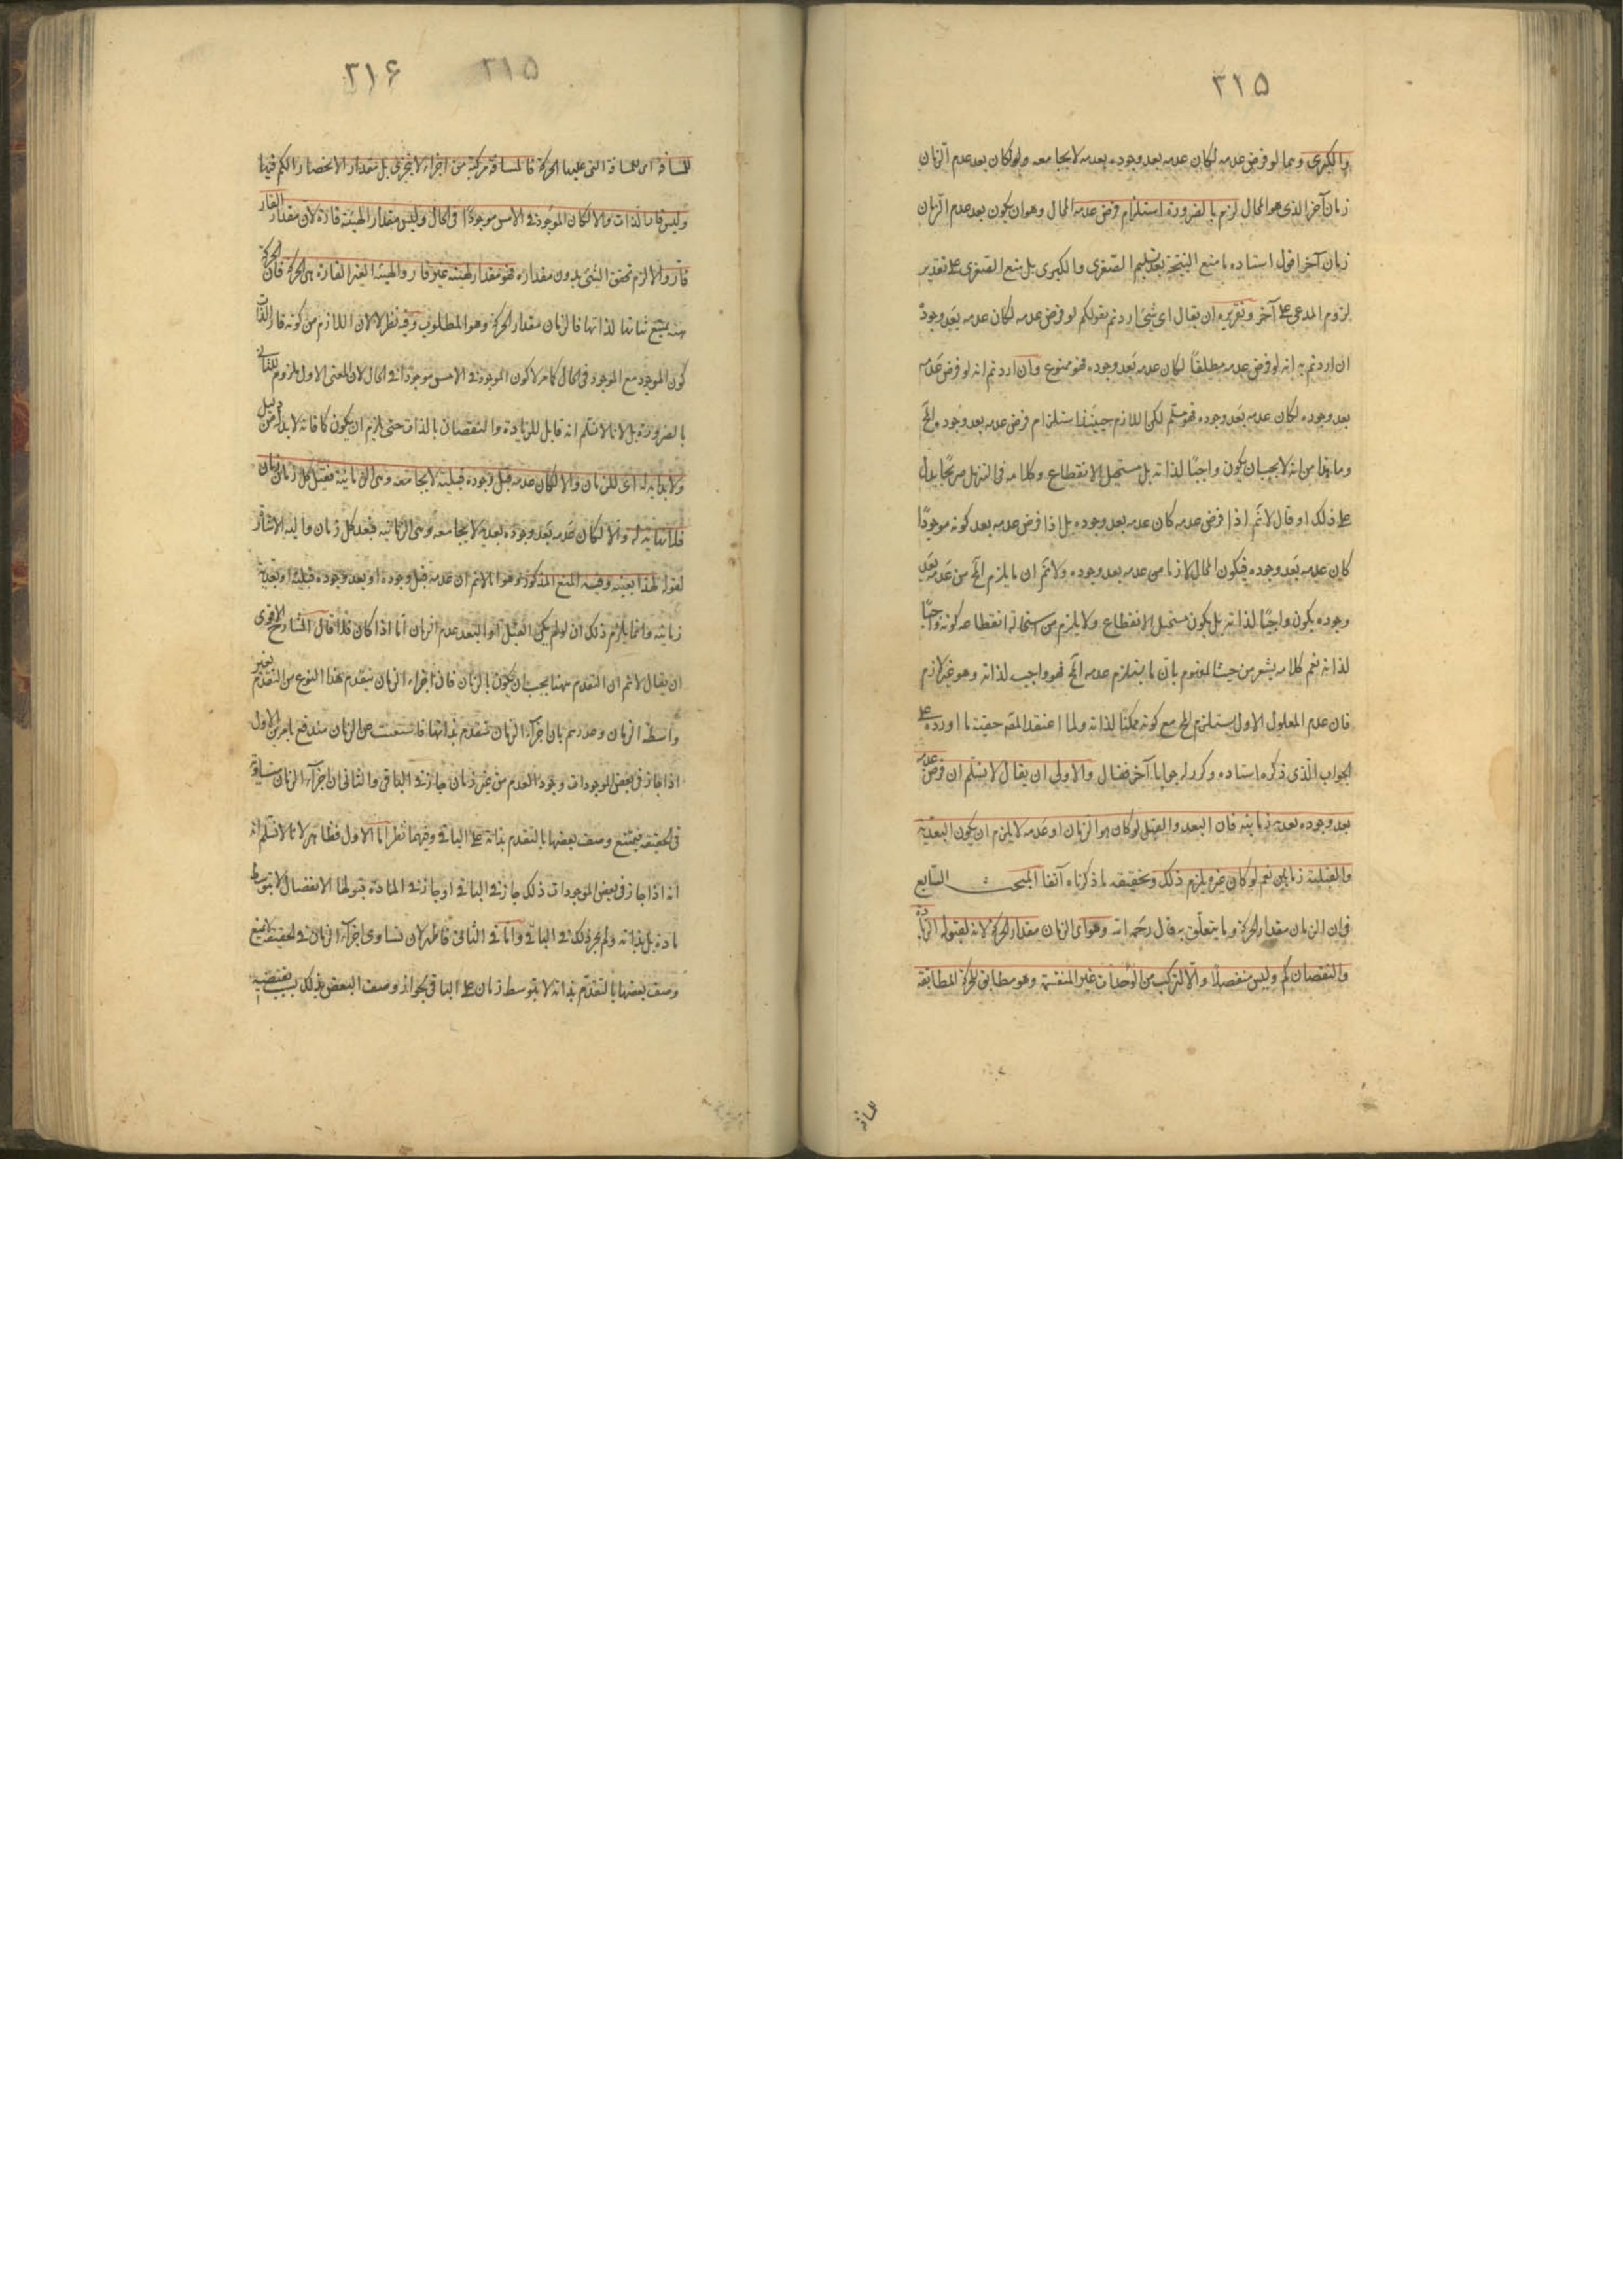 ٣١٥
والكبرى وبما لو فرض عدمه لكان عدمه بعد وجوده بعدية لا يجامعه ولو كان بعد عدم الزمان
زمان آخر الذي هو المحال لزم بالضرورة استلزام فرض عدمه المحال وهو ان يكون بعد عدم الزمان
زمان آخر اقول استاده ما منع النتيجة بعد تسليم الصغرى والكبرى بل منع الصغرى على تقدير
لزوم المدعى على آخر وتقريره ان يقال اي شيء اردتم بقولكم لو فرض عدمه لكان عدمه بعد وجوده
ان اردتم به انه لو فرض عدمه مطلقا لكان عدمه بعد وجوده فهو ممنوع وان اردتم انه لو فرض عدمه
بعد وجوده لكان عدمه بعد وجوده فهو مسلم لكن اللازم حينئذ استلزام فرض عدمه بعد وجوده المح
وما هذا من انه لا يجب ان يكون واجبا لذاته بل مستحيل الانقطاع وكلامه في التنزل صريحا يدل
على ذلك او قال لا نم اذا فرض عدمه كان عدمه بعد وجوده بل اذا فرض عدمه بعد كونه موجودا
كان عدمه بعد وجوده فيكون المحال لازما من عدمه بعد وجوده ولا نم ان ما يلزم المح من عدمه بعد
وجوده يكون واجبا لذاته بل يكون مستحيل الانقطاع ولا يلزم من استحالة انقطاعه كونه واجبا
لذاته نعم كلامه يشعر من حيث المفهوم بان ما يستلزم عدمه المح فهو واجب لذاته وهو غير لازم
فان عدم المعلول الاول يستلزم المح مع كونه ممكنا لذاته ولما اعتقد المص حقية ما اورده على
الجواب الذي ذكره استاده وكرر له جوابا آخر فقال والاولى ان يقال لا نسلم ان فرض عدمه
بعد وجوده بعدية زمانية فان البعد والقبل لو كان هو الزمان او عدمه لا يلزم ان يكون البعدية
والقبلية زمانيين نعم لو كان غيره يلزم ذلك وتحقيقه ما ذكرناه آنفا المبحث السابع
في ان الزمان مقدار الحركة وما يتعلق به قال رحمه الله وهو اي الزمان مقدار الحركة لانه لقبوله الزيادة
والنقصان كم وليس منفصلا والا لتركب من الوحدات غير المنقسمة وهو مطابق للحركة المطابقة
للمسافة
٣١٦ ٣١٥
للمسافة اي للمسافة التي عليها الحركة فالمسافة مركبة من اجزاء لا تتجزى بل مقدار الانحصار الكم فيها
وليس قار الذات والا لكان الموجود في الامس موجودا في الحال وليس مقدار الهيئة قارة لان مقدار القار
قار والا لزم تحقق الشيء بدون مقداره فهو مقدار لهيئة غير قار والهيئة الغير القارة هي الحركة فان الحركة
هيئة يمتنع ثباتها لذاتها فالزمان مقدار الحركة وهو المطلوب وفيه نظر لا لان اللازم من كونه قار الذات
كون الموجود مع الموجود في الحال كما مر لا كون الموجود في الامس موجودا في الحال لان المعنى الاول ملزوم للثاني
بالضرورة بل لانا لا نسلم انه قابل للزيادة والنقصان بالذات حتى يلزم ان يكون كما فانه لا بد له من دليل
ولا بداية له اي للزمان والا لكان عدمه قبل وجوده قبلية لا يجامعه وهي الزمانية فقبل كل زمان زمان
فلا نهاية له والا لكان عدمه بعد وجوده بعدية لا يجامعه وهي الزمانية فبعد كل زمان واليه الاشارة
لقوله لهذا بعينه وفيه المنع المذكور وهو انا لا نم ان عدمه قبل وجوده او بعد وجوده قبلية او بعدية
زمانية وانما يلزم ذلك ان لو لم يكن القبل او البعد عدم الزمان اما اذا كان فلا قال الشارح الاقوى
ان يقال لا نم ان التقدم ههنا يجب ان يكون بالزمان فان اجزاء الزمان يتقدم هذا النوع من التقدم بغير
واسطة الزمان وعذرتم بان اجزاء الزمان تتقدم بذاتها فاستغنت عن الزمان مندفع بامرين الاول
اذا جاز في بعض الموجودات وجود العدم من غير زمان جاز في الباقي والثاني ان اجزاء الزمان متساوية
في الحقيقة فيمتنع وصف بعضها بالتقدم بذاته على الباقي وفيهما نظر اما الاول فظاهر لانا لا نسلم انه
انه اذا جاز في بعض الموجودات ذلك جاز في الباقي او جاز في المادة قبولها الانفصال لا بتوسط
مادة بل بذاته ولم يجز ذلك في الباقي واما في الثاني فاظهر لان تساوي اجزاء الزمان في الحقيقة لا يمنع
وصف بعضها بالتقدم بذاته لا بتوسط زمان على الباقي لجواز وصف البعض بذلك بسبب يقتضيه